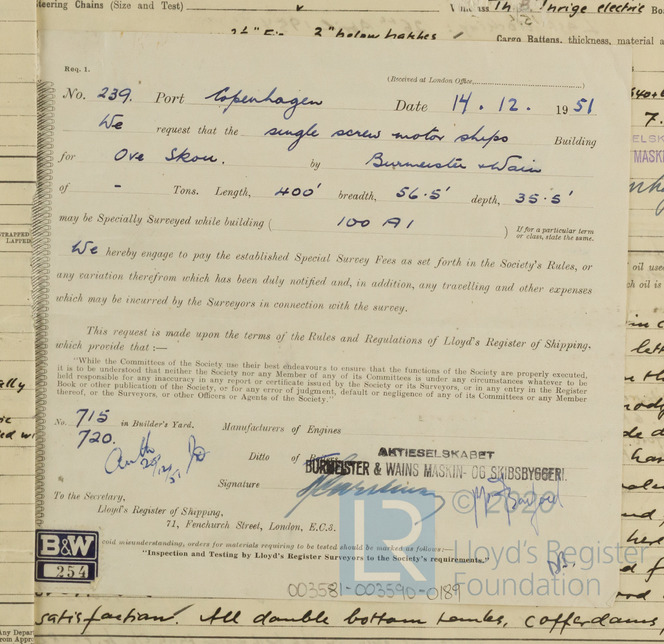 teering Chains (Size and Test)
Cargo Battens, thickness, material a
Req. 1.
(Received at London Office
No. 239. Port Copenhagen Date 14.12. 1951
We request that the single screw motor ships Building
for Ove Skou. by Burmeister & Wain
of - Tons. Length, 400' breadth, 56.5' depth, 35.5'
may be Specially Surveyed while building ( 100 A1 ) If for a particular term
or class, state the same.
We hereby engage to pay the established Special Survey Fees as set forth in the Society's Rules, or
any variation therefrom which has been duly notified and, in addition, any travelling and other expenses
which may be incurred by the Surveyors in connection with the survey.
This request is made upon the terms of the Rules and Regulations of Lloyd's Register of Shipping,
which provide that :—
"While the Committees of the Society use their best endeavours to ensure that the functions of the Society are properly executed,
it is to be understood that neither the Society nor any Member of any of its Committees is under any circumstances whatever to be
held responsible for any inaccuracy in any report or certificate issued by the Society or its Surveyors, or in any entry in the Register
Book or other publication of the Society, or for any error of judgment, default or negligence of any of its Committees or any Member
thereof, or the Surveyors, or other Officers or Agents of the Society."
No. 715 in Builder's Yard. Manufacturers of Engines
720.
Ditto of
AKTIESELSKABET
BURMEISTER & WAINS MASKIN- OG SKIBSBYGGERI.
Signature
To the Secretary,
Lloyd's Register of Shipping,
71, Fenchurch Street, London, E.C.3.
© 2020
B&W
254
void misunderstanding, orders for materials requiring to be tested should be marked as follows:—
"Inspection and Testing by Lloyd's Register Surveyors to the Society's requirements."
LR
Lloyd's Register
Foundation
003581-003590-0189
satisfaction. All double bottom tanks, cofferdams,